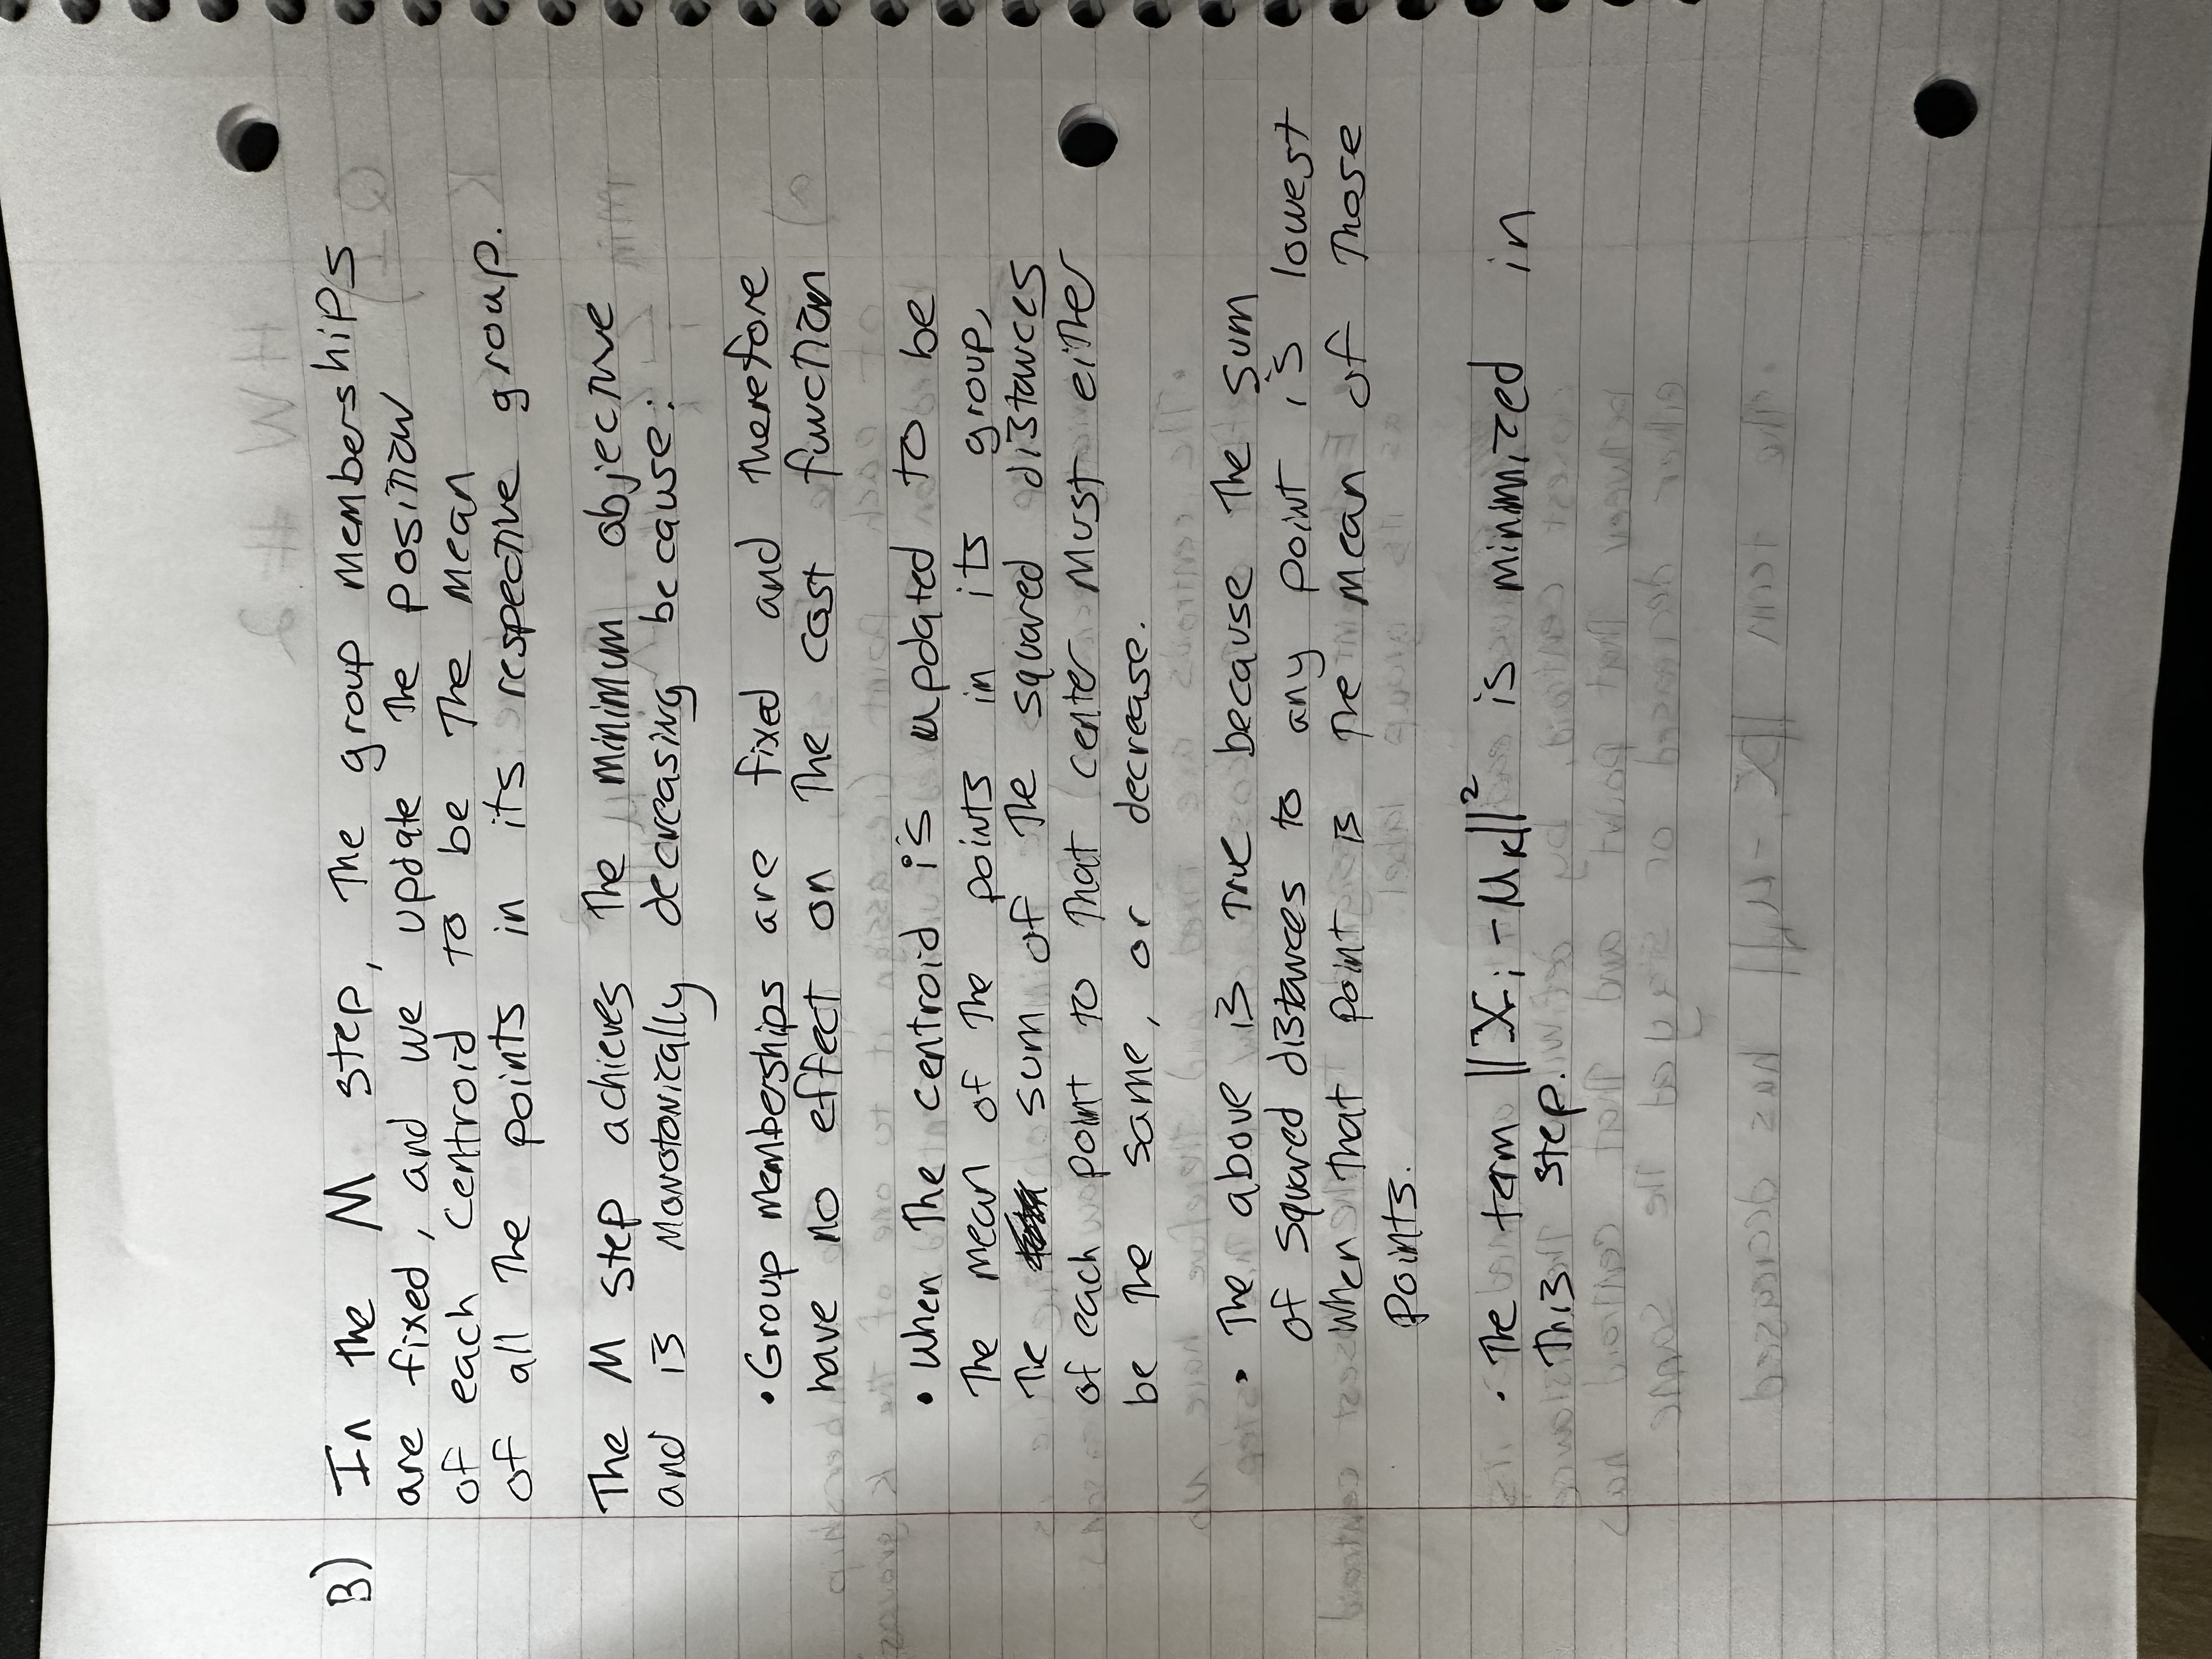 B) In the M step, the group memberships
are fixed, and we update the position
of each centroid to be the mean
of all the points in its respective group.
The M step achieves the minimum objective
and is monotonically decreasing because:
• Group memberships are fixed and therefore
have no effect on the cost function
• When the centroid is updated to be
the mean of the points in its group,
the sum of the squared distances
of each point to that center must either
be the same, or decrease.
• The above is true because the sum
of squared distances to any point is lowest
when that point is the mean of those
points.
• The term ||Xi - μk||² is minimized in
this step.